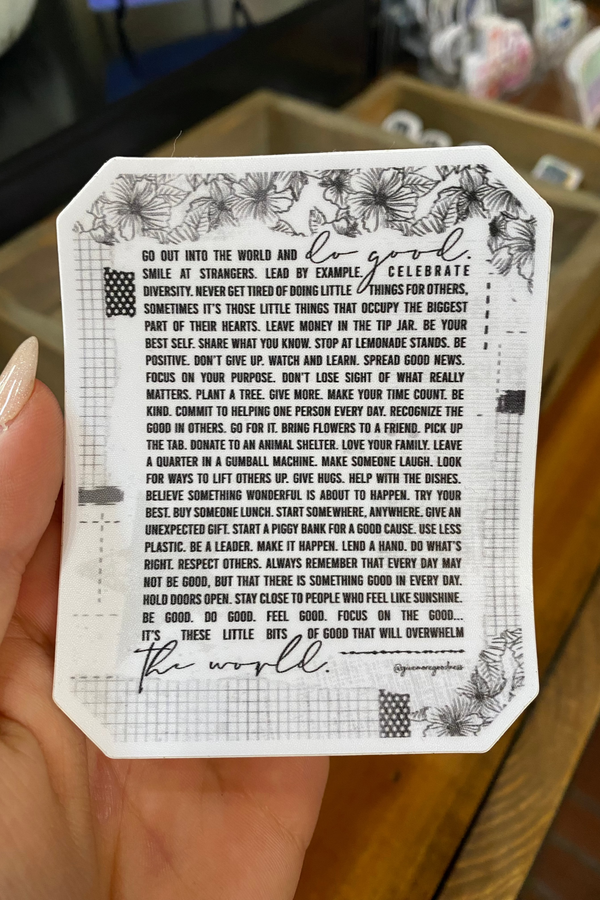 GO OUT INTO THE WORLD AND do good.
SMILE AT STRANGERS. LEAD BY EXAMPLE. CELEBRATE
DIVERSITY. NEVER GET TIRED OF DOING LITTLE THINGS FOR OTHERS,
SOMETIMES IT'S THOSE LITTLE THINGS THAT OCCUPY THE BIGGEST
PART OF THEIR HEARTS. LEAVE MONEY IN THE TIP JAR. BE YOUR
BEST SELF. SHARE WHAT YOU KNOW. STOP AT LEMONADE STANDS. BE
POSITIVE. DON'T GIVE UP. WATCH AND LEARN. SPREAD GOOD NEWS.
FOCUS ON YOUR PURPOSE. DON'T LOSE SIGHT OF WHAT REALLY
MATTERS. PLANT A TREE. GIVE MORE. MAKE YOUR TIME COUNT. BE
KIND. COMMIT TO HELPING ONE PERSON EVERY DAY. RECOGNIZE THE
GOOD IN OTHERS. GO FOR IT. BRING FLOWERS TO A FRIEND. PICK UP
THE TAB. DONATE TO AN ANIMAL SHELTER. LOVE YOUR FAMILY. LEAVE
A QUARTER IN A GUMBALL MACHINE. MAKE SOMEONE LAUGH. LOOK
FOR WAYS TO LIFT OTHERS UP. GIVE HUGS. HELP WITH THE DISHES.
BELIEVE SOMETHING WONDERFUL IS ABOUT TO HAPPEN. TRY YOUR
BEST. BUY SOMEONE LUNCH. START SOMEWHERE, ANYWHERE. GIVE AN
UNEXPECTED GIFT. START A PIGGY BANK FOR A GOOD CAUSE. USE LESS
PLASTIC. BE A LEADER. MAKE IT HAPPEN. LEND A HAND. DO WHAT'S
RIGHT. RESPECT OTHERS. ALWAYS REMEMBER THAT EVERY DAY MAY
NOT BE GOOD, BUT THAT THERE IS SOMETHING GOOD IN EVERY DAY.
HOLD DOORS OPEN. STAY CLOSE TO PEOPLE WHO FEEL LIKE SUNSHINE.
BE GOOD. DO GOOD. FEEL GOOD. FOCUS ON THE GOOD...
IT'S THESE LITTLE BITS OF GOOD THAT WILL OVERWHELM
the world.
@givemoregoodness